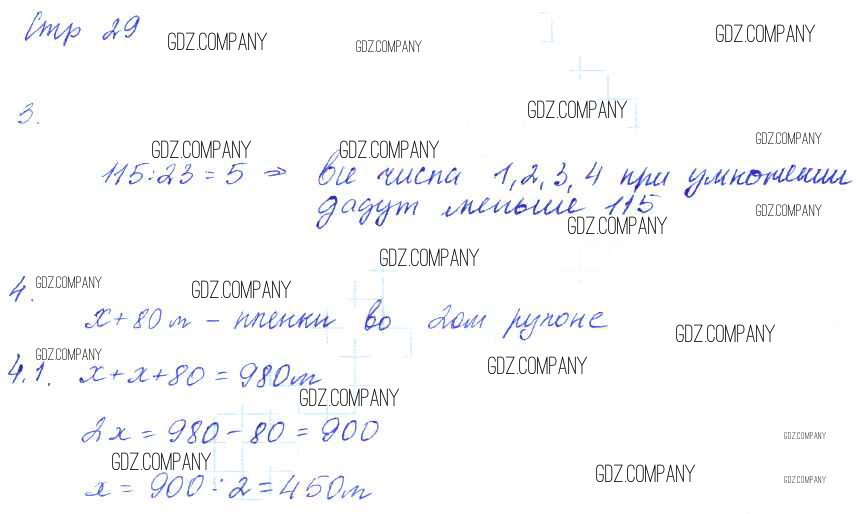 Стр 29
GDZ.COMPANY GDZ.COMPANY GDZ.COMPANY
GDZ.COMPANY
3.
GDZ.COMPANY GDZ.COMPANY GDZ.COMPANY
115:23 = 5 ⇒ все числа 1, 2, 3, 4 при умножении
дадут меньше 115
GDZ.COMPANY GDZ.COMPANY
GDZ.COMPANY
4. GDZ.COMPANY GDZ.COMPANY
x + 80 м – пленки во 2ом рулоне
GDZ.COMPANY
GDZ.COMPANY GDZ.COMPANY
4.1. x + x + 80 = 980 м
GDZ.COMPANY
2x = 980 – 80 = 900
GDZ.COMPANY
GDZ.COMPANY GDZ.COMPANY GDZ.COMPANY
x = 900 : 2 = 450 м